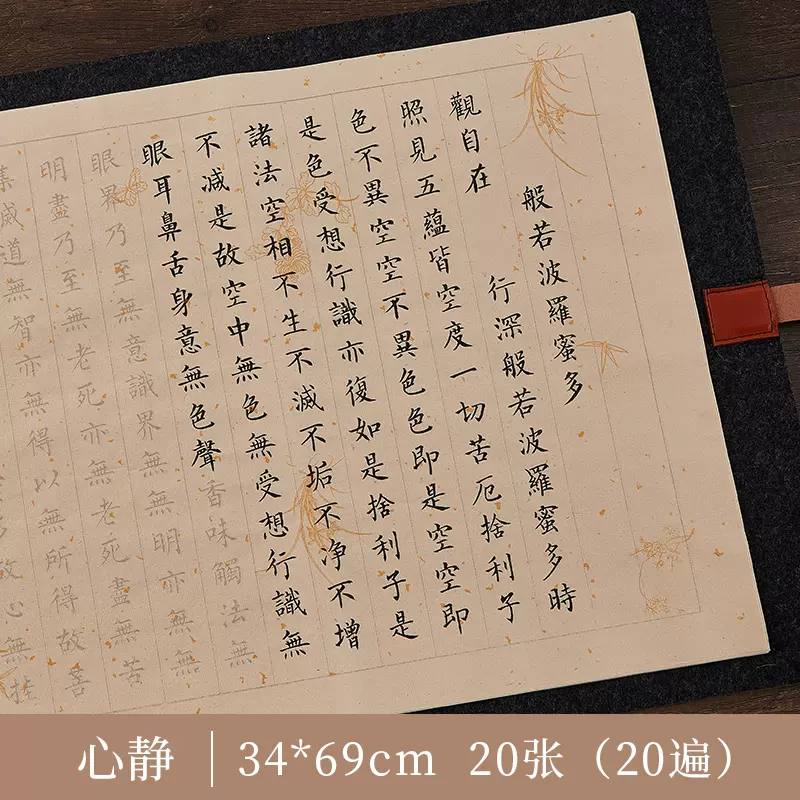 般若波羅蜜多
觀自在 行深般若波羅蜜多時
照見五蘊皆空度一切苦厄捨利子
色不異空空不異色色即是空空即
是色受想行識亦復如是捨利子是
諸法空相不生不滅不垢不净不增
不减是故空中無色無受想行識無
眼耳鼻舌身意無色聲香味觸法無
眼界乃至無意識界無無明亦無無
明盡乃至無老死亦無老死盡無苦
集滅道無智亦無得以無所得故菩
故心無挂
心静 34*69cm 20张（20遍）